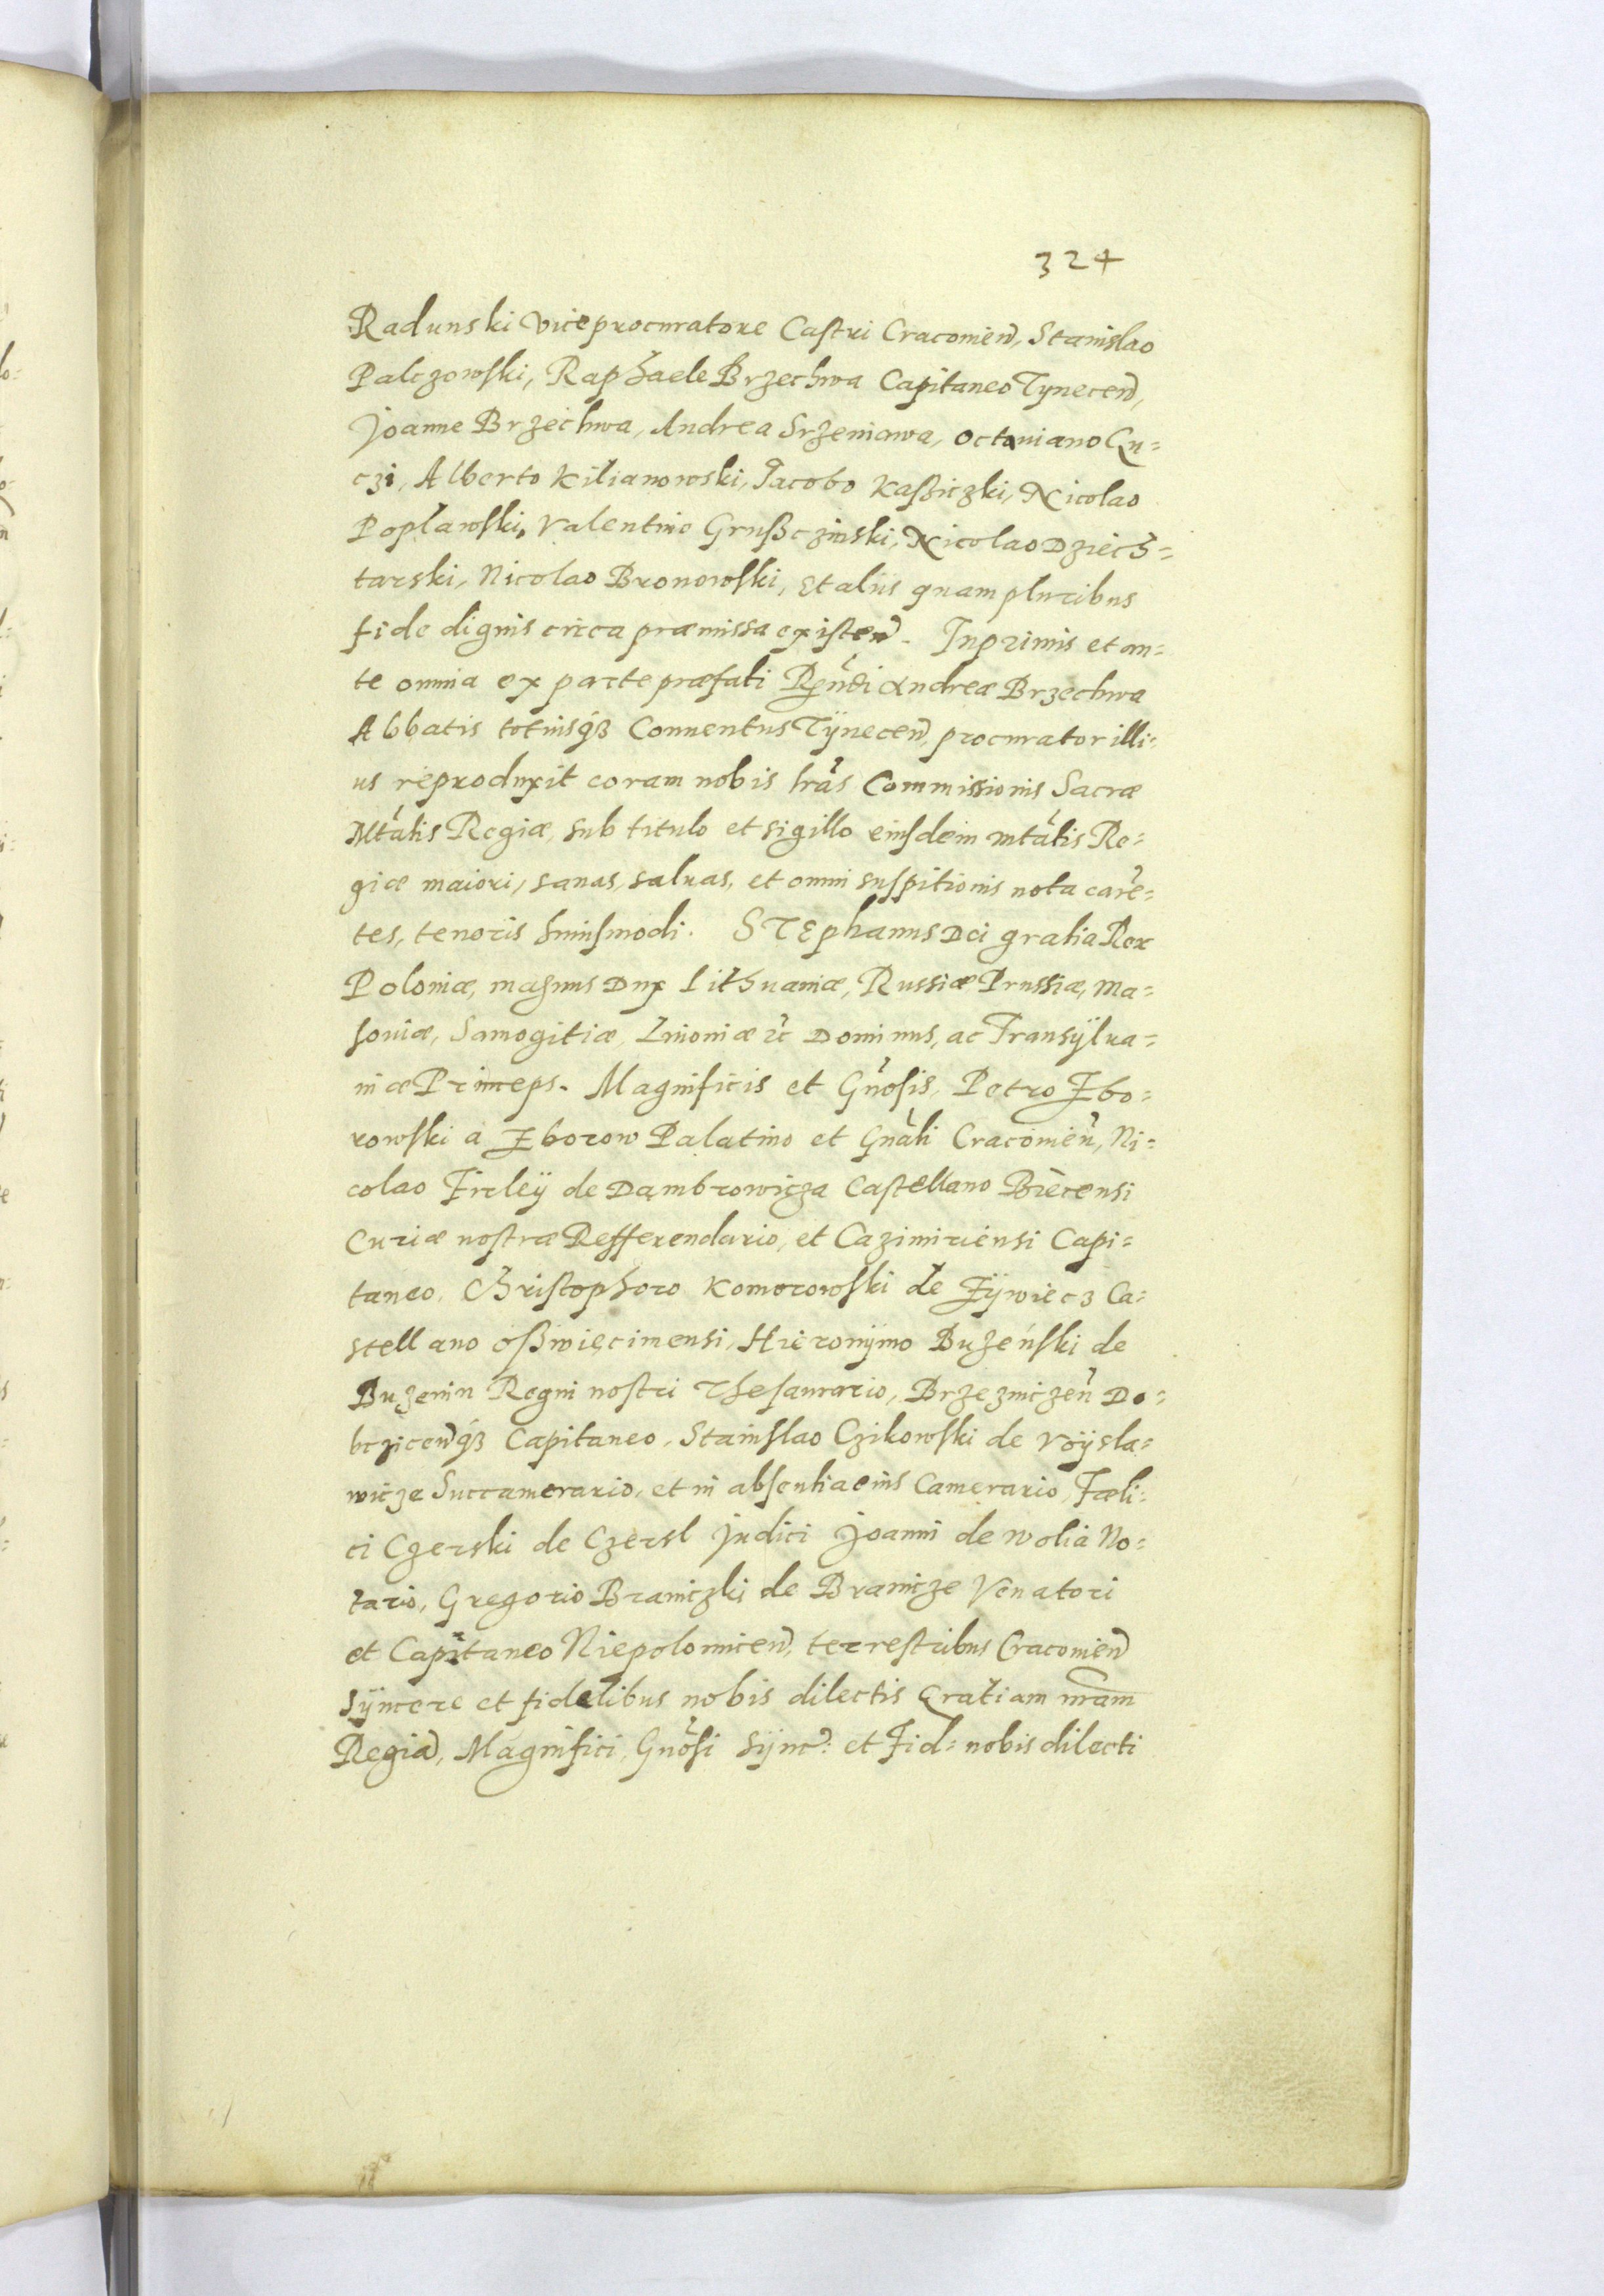 324
Radunski Viceprocuratore Castri Cracovien, Stanislao
Palczowski, Raphaele Brzechwa Capitaneo Tynecen,
Joanne Brzechwa, Andrea Srzeniawa, Octaviano Qu=
czi, Alberto Kilianowski, Jacobo Kaßiczki, Nicolao
Poplawski, Valentino Grußczinski, Nicolao Dziech=
tarski, Nicolao Bronowski, et aliis quam pluribus
fide dignis circa præmissa existen. Inprimis et an=
te omnia ex parte præfati Rṽndi Andreæ Brzechwa
Abbatis totiusqȝ Conventus Tÿnecen, procurator illi=
us reproduxit coram nobis lrãs Commissionis Sacræ
Mtãtis Regiæ, sub titulo et sigillo eiusdem mtãtis Re=
giæ maiori, sanas, salvas, et omni suspitionis nota carẽ=
tes, tenoris huiusmodi. STEphanus Dei gratia Rex
Poloniæ, magnus Dux Lithuaniæ, Russiæ Prussiæ, Ma=
soviæ, Samogitiæ, Livoniæ ꝛc Dominus, ac Transÿlva=
niæ Princeps. Magnificis et Gñosis, Petro Zbo=
rowski a Zborow Palatino et Gnãli Cracovieñ, Ni=
colao Firleÿ de Dambrowicza Castellano Biecensi
Curiæ nostræ Refferendario, et Cazimiriensi Capi=
taneo, Christophoro Komorowski de Zÿwiecz Ca=
stellano Oßwięcimensi, Hieronÿmo Bużeński de
Buzenin Regni nostri Thesaurario, Brzezniczeñ Do=
bczicenqȝ Capitaneo, Stanislao Czikowski de Voÿsla=
wicze Succamerario, et in absentia eius Camerario, Fæli=
ci Czerski de Czersl Judici Joanni de Wolia No=
tario, Gregorio Braniczki de Branicze Venatori
et Capitaneo Niepolomicen, terrestribus Cracovien
Sÿncere et fidelibus nobis dilectis Gratiam nram
Regia, Magnifici, Gñosi Sÿnc: et Fid= nobis dilecti